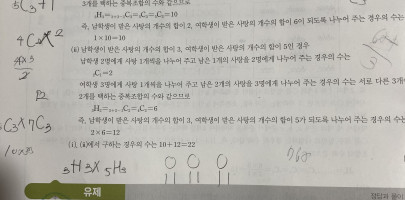 3개를 택하는 중복조합의 수와 같으므로
₃H₃=₃₊₃₋₁C₃=₅C₃=₅C₂=10
즉, 남학생이 받은 사탕의 개수의 합이 2, 여학생이 받은 사탕의 개수의 합이 6이 되도록 나누어 주는 경우의 수는
1×10=10
(ii) 남학생이 받은 사탕의 개수의 합이 3, 여학생이 받은 사탕의 개수의 합이 5인 경우
남학생 2명에게 사탕 1개씩을 나누어 주고 남은 1개의 사탕을 2명에게 나누어 주는 경우의 수는
₂C₁=2
여학생 3명에게 사탕 1개씩을 나누어 주고 남은 2개의 사탕을 3명에게 나누어 주는 경우의 수는 서로 다른 3개
2개를 택하는 중복조합의 수와 같으므로
₃H₂=₃₊₂₋₁C₂=₄C₂=6
즉, 남학생이 받은 사탕의 개수의 합이 3, 여학생이 받은 사탕의 개수의 합이 5가 되도록 나누어 주는 경우의 수는
2×6=12
(i), (ii)에서 구하는 경우의 수는 10+12=22
₃H₃X₅H₃
유제